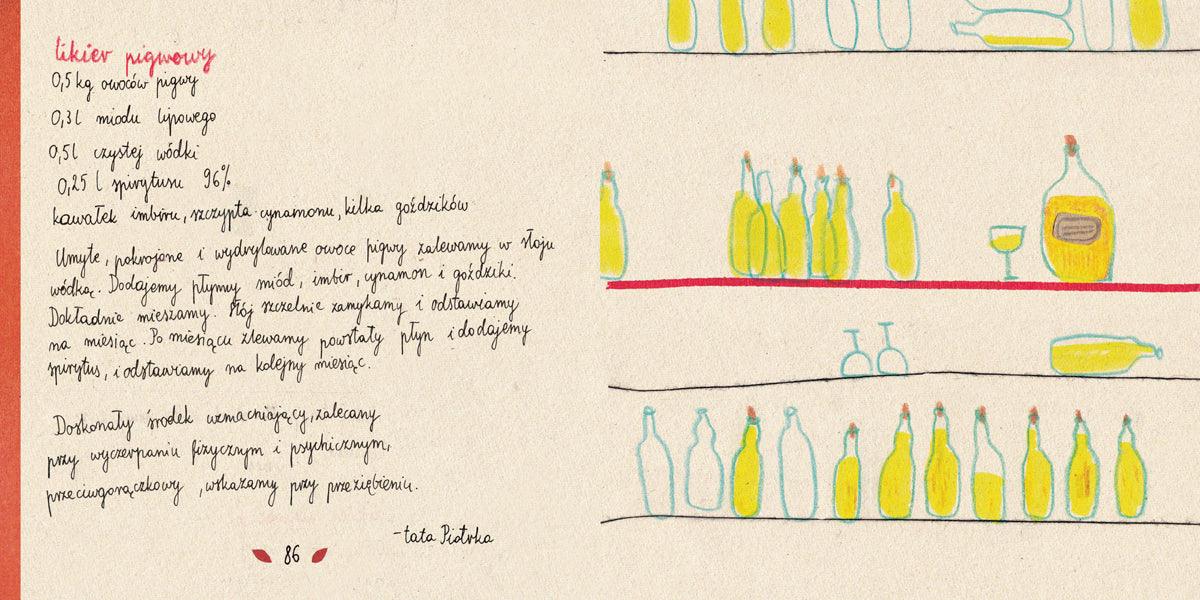 likier pigwowy
0,5 kg owoców pigwy
0,3 l miodu lipowego
0,5 l czystej wódki
0,25 l spirytusu 96%
kawałek imbiru, szczypta cynamonu, kilka goździków
Umyte, pokrojone i wydrylowane owoce pigwy zalewamy w słoju
wódką. Dodajemy płynny miód, imbir, cynamon i goździki.
Dokładnie mieszamy. Słój szczelnie zamykamy i odstawiamy
na miesiąc. Po miesiącu zlewamy powstały płyn i dodajemy
spirytus, i odstawiamy na kolejny miesiąc.
Doskonały środek wzmacniający, zalecany
przy wyczerpaniu fizycznym i psychicznym,
przeciwgorączkowy, wskazany przy przeziębieniu.
- tata Piotrka
86